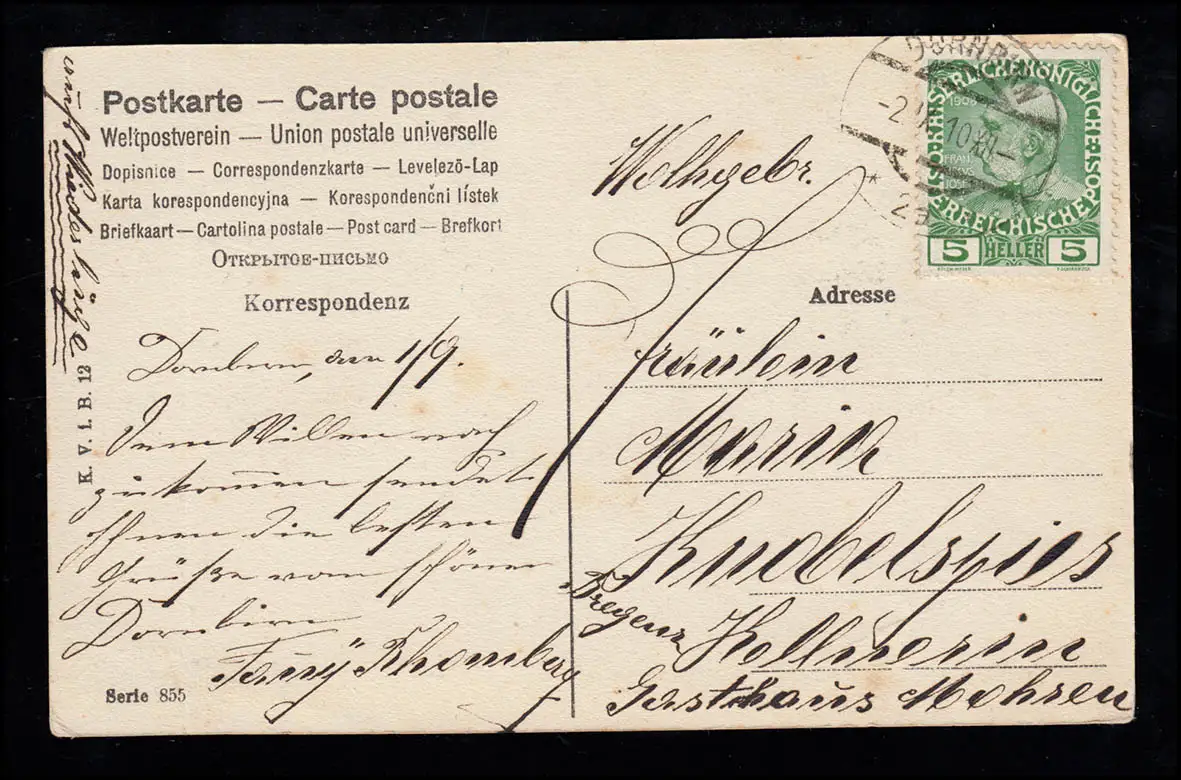 Postkarte — Carte postale
Weltpostverein — Union postale universelle
Dopisnice — Correspondenzkarte — Levelező-Lap
Karta korespondencyjna — Korespondenčni lístek
Briefkaart — Cartolina postale — Post card — Brefkort
Открытое-письмо
Korrespondenz
Dornbirn, den 1/9.
Dem Willen nach
zukommen sendet
Ihnen die besten
Grüße vom schönen
Dornbirn
Fanny Rhomberg
Serie 855
K. V. i. B. 12
Wiedersehn
DORNBIRN
KAISERLICHE KÖNIGLICHE ÖSTERREICHISCHE POST
1908
FRANZ
JOSEF
5 HELLER 5
Wolhgebr.
Adresse
Fräulein
Marie
Knobelspies
Kellnerin
Gasthaus Mohren
Bregenz